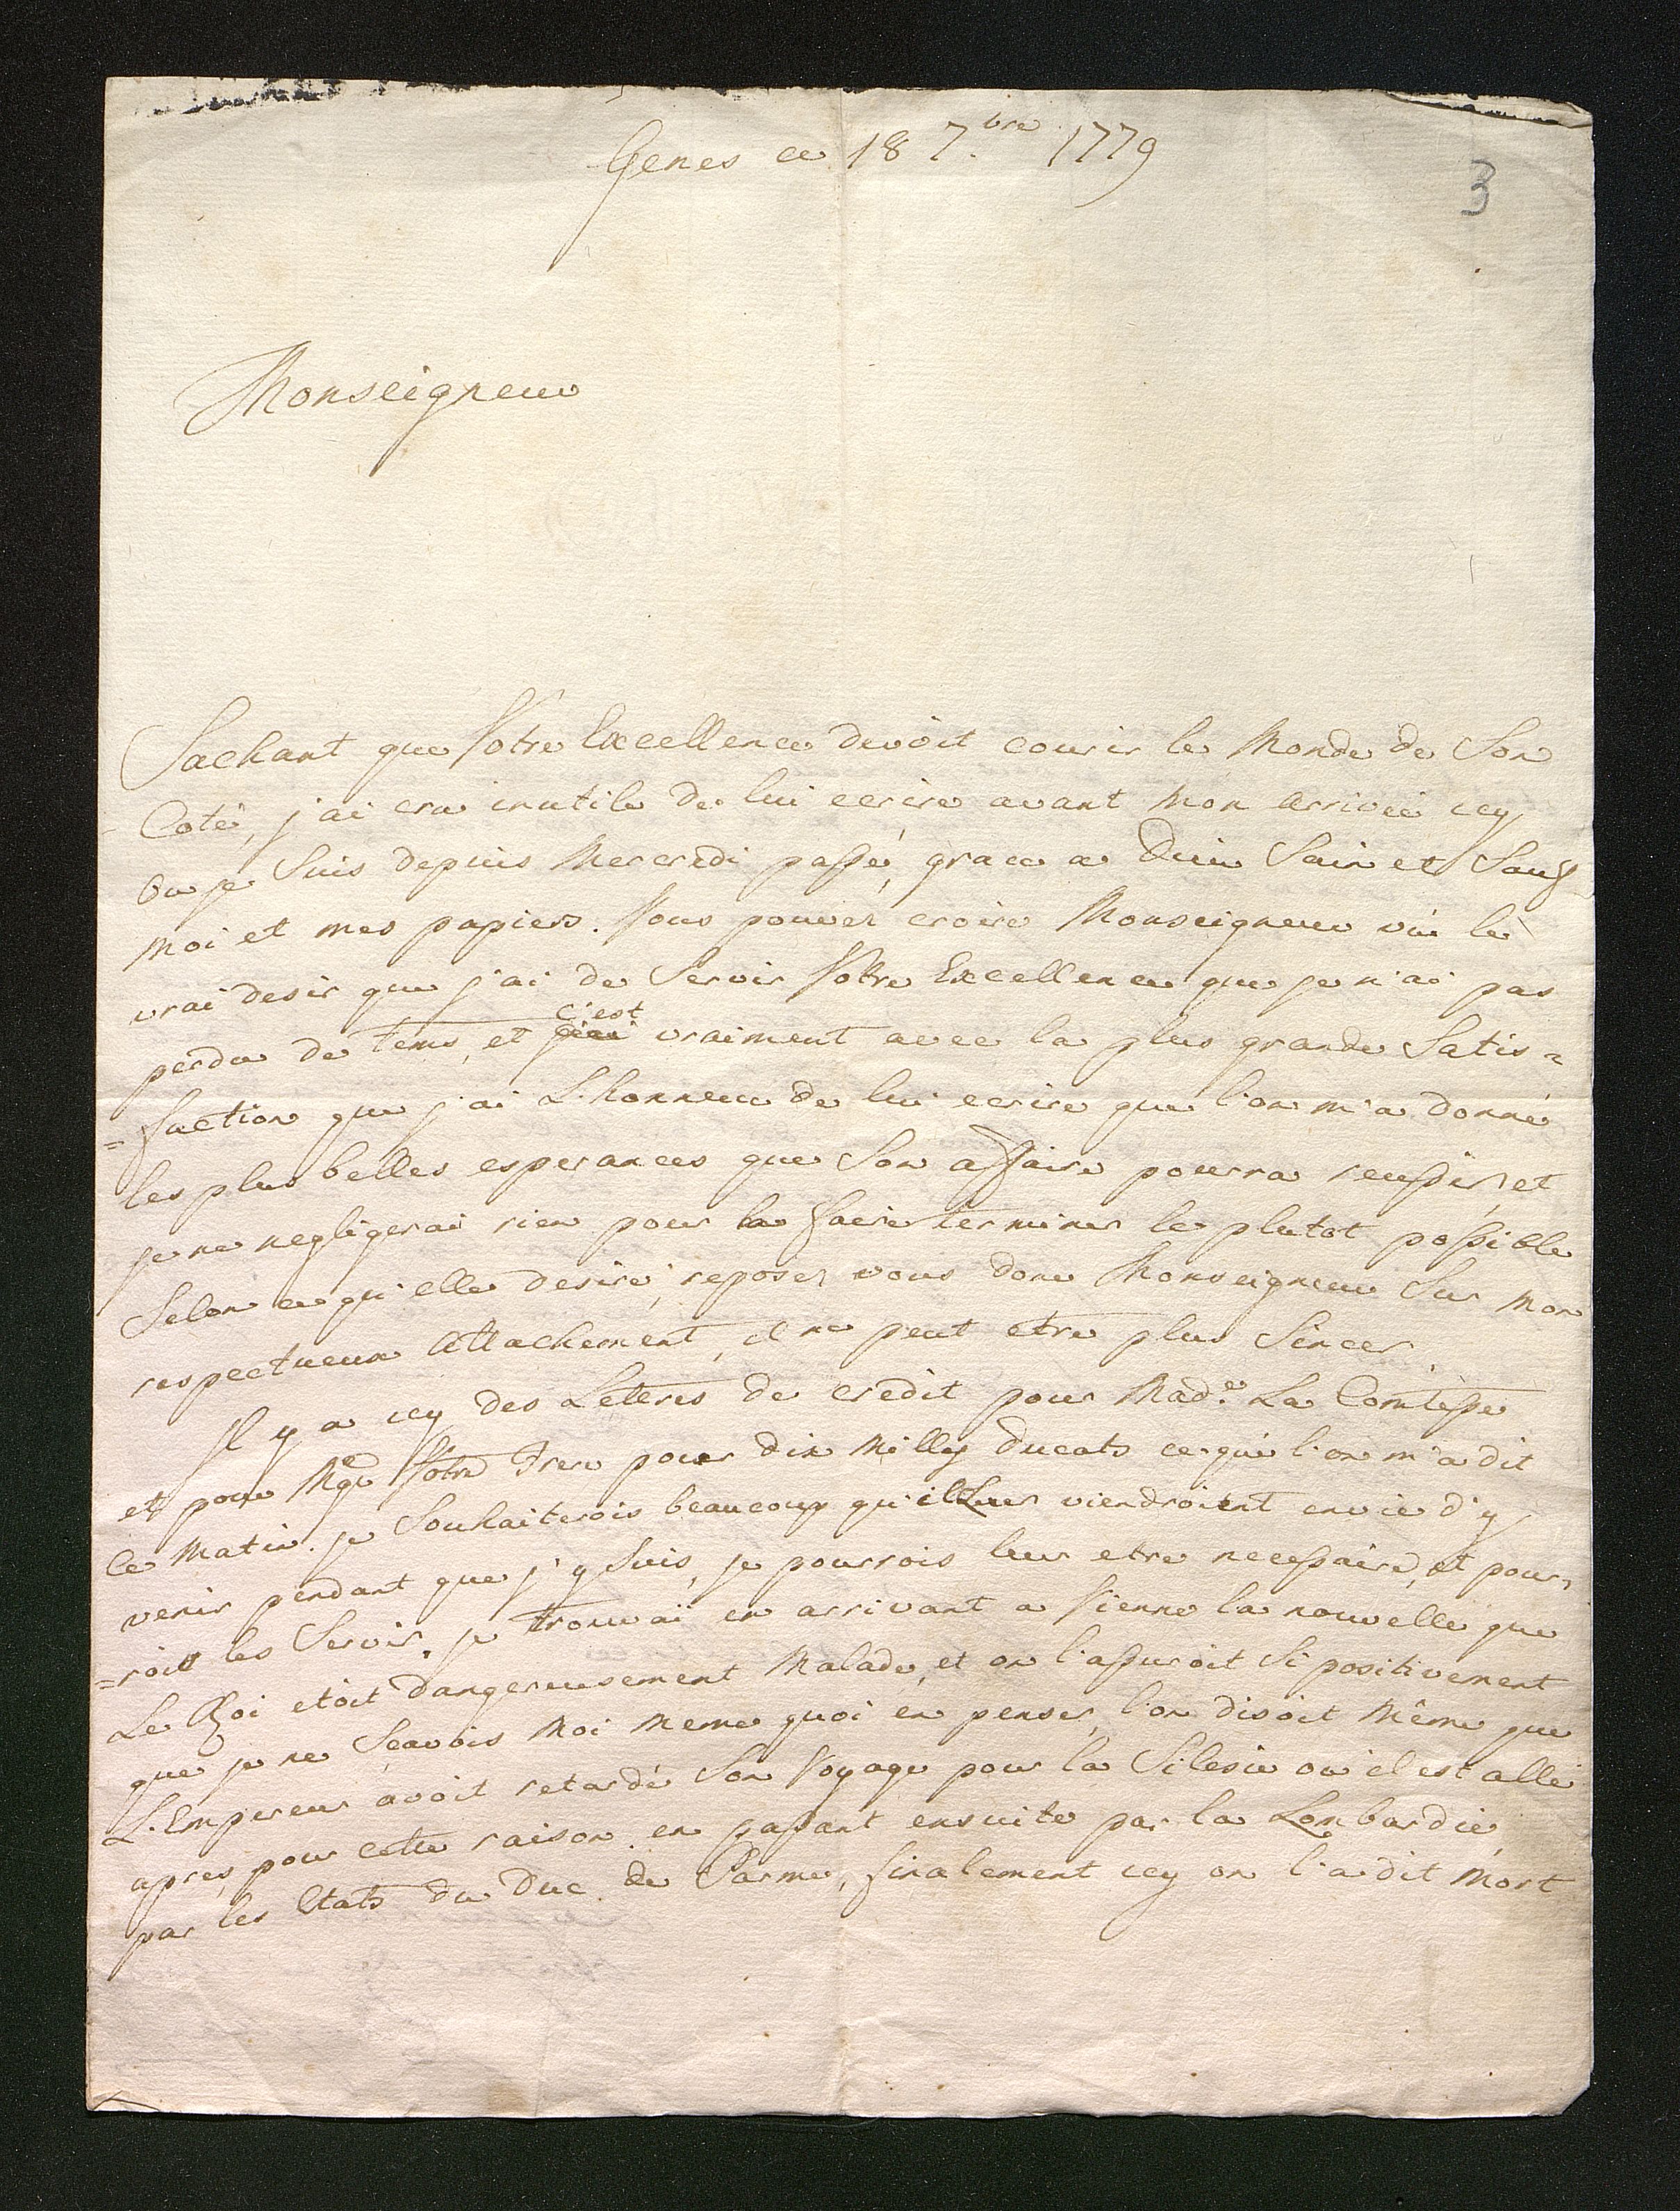 Genes ce 18 7.bre 1779
3
Monseigneur
Sachant que Votre Excellence devoit courir le Monde de Son
Coté, j'ai cru inutile de lui ecrire avant mon arriveé icy
ou je Suis depuis Mercredi passé, grace a Dieu Sain et Sauf
moi et mes papiers. Vous pouvez croire Monseigneur vû le
vrai desir que j'ai de Servir Votre Excellence que je n'ai pas
perdu de tems, et c'est vraiment avec la plus grande Satis=
=faction que j'ai L'honneur de lui ecrire que l'on m'a donné
les plus belles esperances que Son affaire pourra reussir, et
je ne negligerai rien pour la faire terminer le plutot possible
Selon ce qu'elle desire, reposez vous donc Monseigneur Sur mon
respectueux Attachement, il ne peut etre plus Sincer.
Il y a icy des Lettres de credit pour Made. La Comtesse
et pour Mgr Votre Frere pour dix Mille Ducats ce que l'on m'a dit
ce Matin. je Souhaiterois beaucoup qu'il Leur viendroient envie d'y
venir pendant que j'y Suis, je pourrois leur etre necessaire, et pour=
=rois les Servir. je trouvai en arrivant a Vienne la nouvelle que
Le Roi etoit dangereusement Malade, et on l'assuroit Si positivement
que je ne Sçavois Moi Meme quoi en penser, l'on disoit Même que
L'Empereur avoit retardé Son Voyage pour la Silesie ou il est allé
apres, pour cette raison. en passant ensuite par la Lombardie,
par les Etats du Duc de Parme, finalement icy on l'a dit Mort